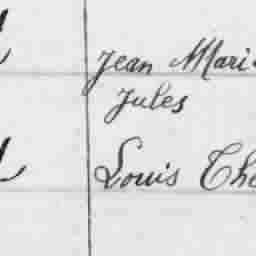 Jean Mari
Jules
Louis The